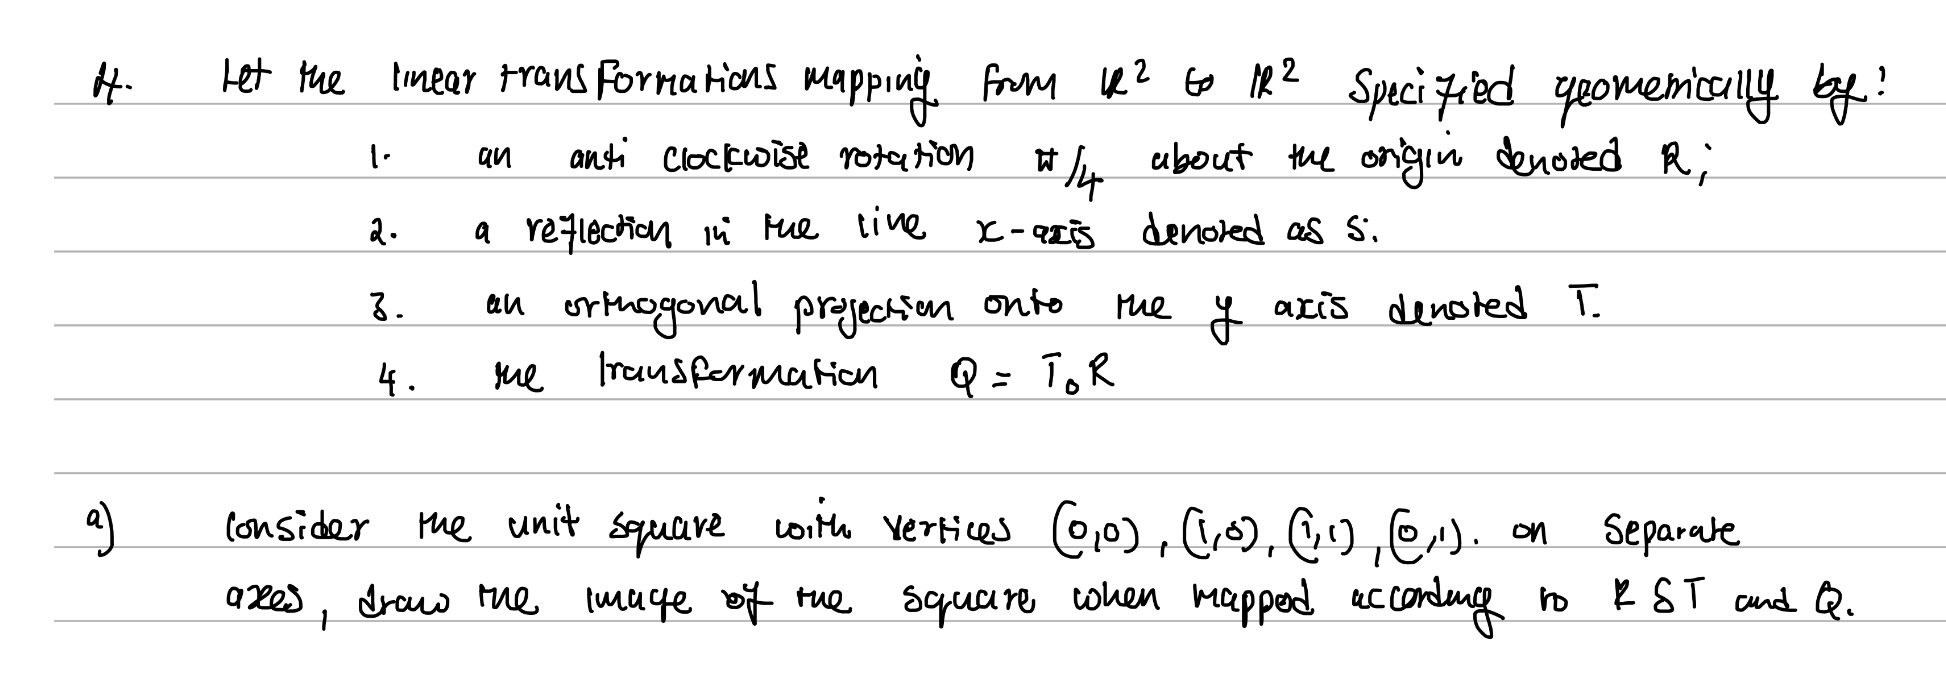 4. Let the linear transformations mapping from ℝ² to ℝ² specified geometrically by:
1. an anti clockwise rotation π/4 about the origin denoted R;
2. a reflection in the line x-axis denoted as S.
3. an orthogonal projection onto the y axis denoted T.
4. the transformation Q = T∘R
a) Consider the unit square with vertices (0,0), (1,0), (1,1), (0,1). on separate
axes, draw the image of the square when mapped according to R S T and Q.